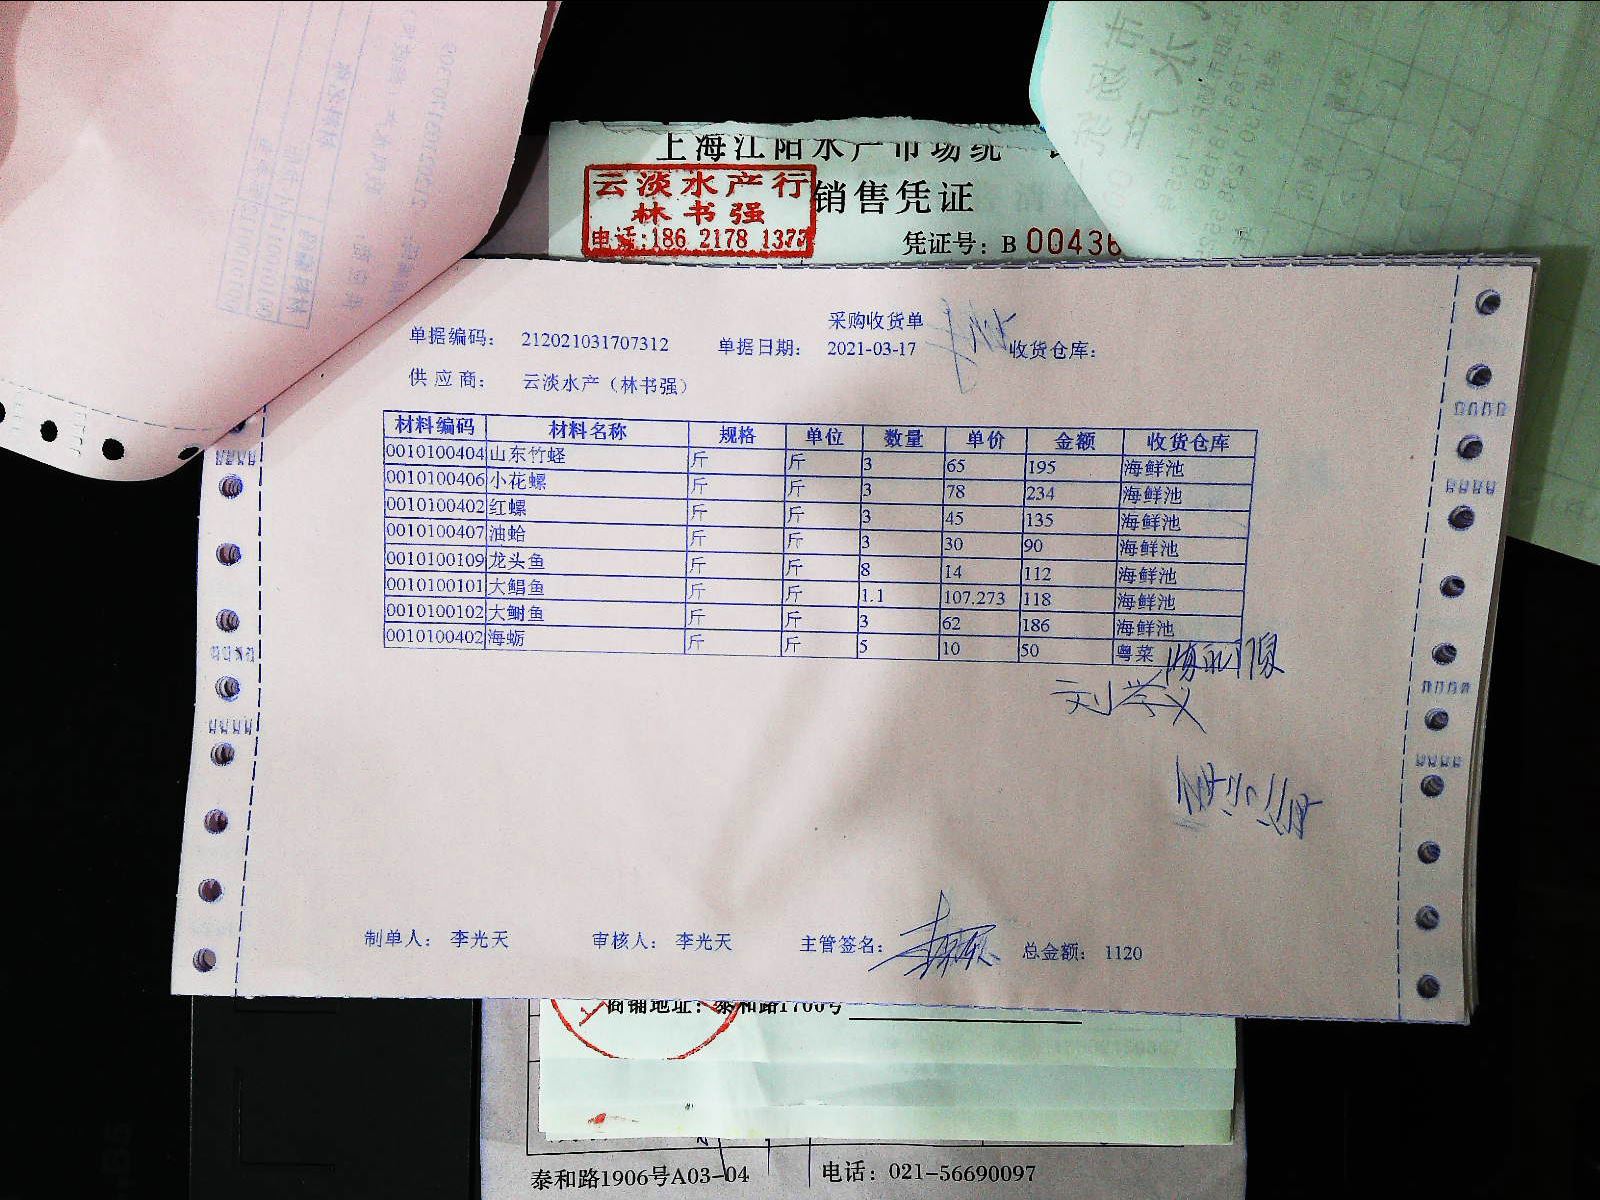 上海江阳水产市场统一
云淡水产行
林书强
电话:186 2178 1377
销售凭证
凭证号: B 00436
采购收货单
单据编码: 212021031707312 单据日期: 2021-03-17 收货仓库:
供应商: 云淡水产（林书强）
材料编码 材料名称 规格 单位 数量 单价 金额 收货仓库
0010100404 山东竹蛏 斤 斤 3 65 195 海鲜池
0010100406 小花螺 斤 斤 3 78 234 海鲜池
0010100402 红螺 斤 斤 3 45 135 海鲜池
0010100407 油蛤 斤 斤 3 30 90 海鲜池
0010100109 龙头鱼 斤 斤 8 14 112 海鲜池
0010100101 大鲳鱼 斤 斤 1.1 107.273 118 海鲜池
0010100102 大鲥鱼 斤 斤 3 62 186 海鲜池
0010100402 海蛎 斤 斤 5 10 50 粤菜
制单人: 李光天 审核人: 李光天 主管签名: 总金额: 1120
商铺地址: 泰和路1700号
泰和路1906号A03-04 电话: 021-56690097